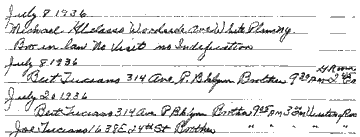 July 8 1936
Michael Woodside Ave White Plaines
Bro in law No Visit no Indification
July 8 1936 4 Room
Bert Tucians 314 Ave P Bklyn Brother 9 20 pm 2 45
July 20 1936
Bert Tucians 314 Ave P Bklyn Brother 9 25 PM 3 Visiting Room
Joe Tucians 1638 E 24th St Brother